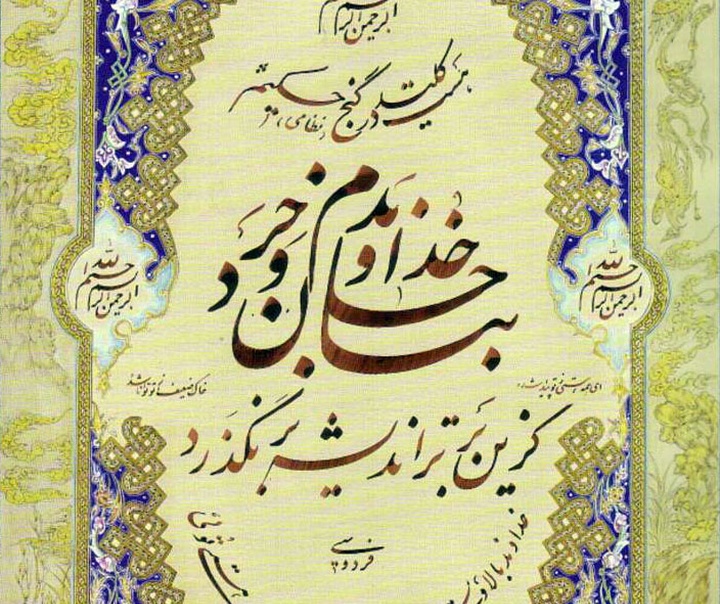 الرحمن الرحیم
هست کلید در گنج حکیم
(نظامی)
بنام خداوند جان و خرد
الله الرحمن الرحیم
الله الرحمن الرحیم
ای همه هستی ز تو پیدا شده
خاک ضعیف از تو توانا شده
کزین برتر اندیشه بر نگذرد
فردوسی
خداوند بالا و